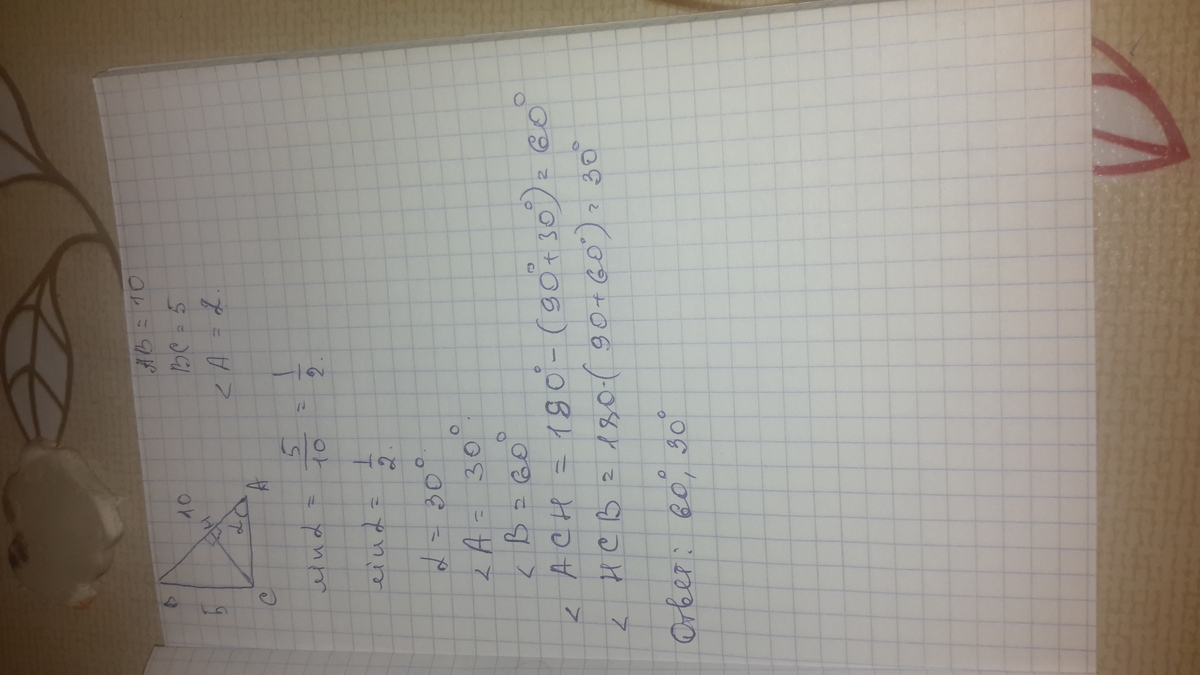 B
10
H
5
α
C
A
AB = 10
BC = 5
< A = α.
sin α = 5/10 = 1/2.
sin α = 1/2.
α = 30°.
< A = 30°.
< B = 60°
< ACH = 180° - (90° + 30°) = 60°
< HCB = 180 - (90 + 60°) = 30°
Ответ: 60°, 30°